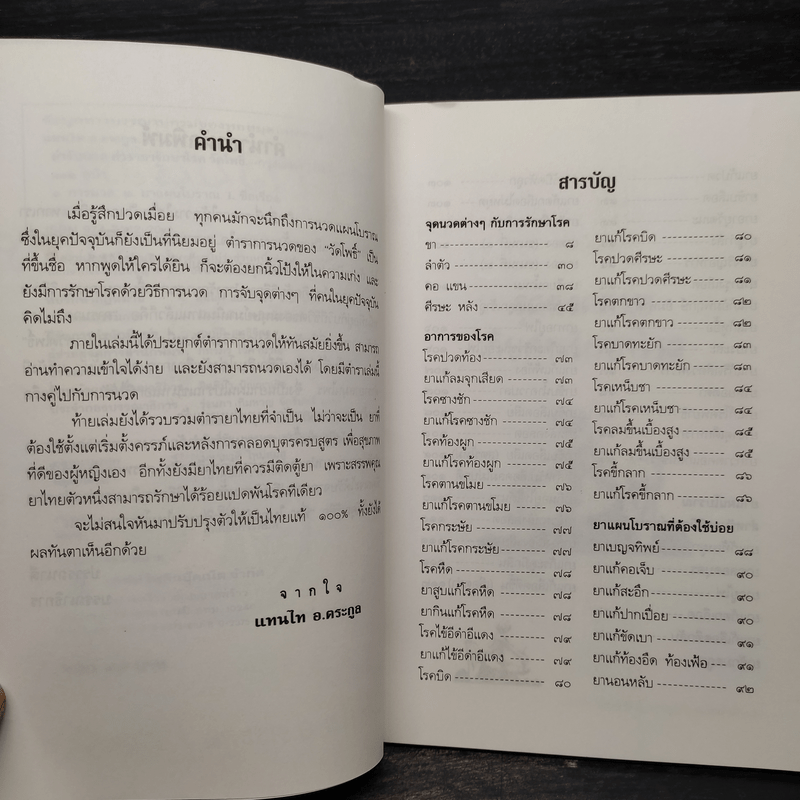 คำนำ
เมื่อรู้สึกปวดเมื่อย ทุกคนมักจะนึกถึงการนวดแผนโบราณ
ซึ่งในยุคปัจจุบันก็ยังเป็นที่นิยมอยู่ ตำราการนวดของ "วัดโพธิ์" เป็น
ที่ขึ้นชื่อ หากพูดให้ใครได้ยิน ก็จะต้องยกนิ้วโป้งให้ในความเก่ง และ
ยังมีการรักษาโรคด้วยวิธีการนวด การจับจุดต่างๆ ที่คนในยุคปัจจุบัน
คิดไม่ถึง
ภายในเล่มนี้ได้ประยุกต์ตำราการนวดให้ทันสมัยยิ่งขึ้น สามารถ
อ่านทำความเข้าใจได้ง่าย และยังสามารถนวดเองได้ โดยมีตำราเล่มนี้
กางคู่ไปกับการนวด
ท้ายเล่มยังได้รวบรวมตำรายาไทยที่จำเป็น ไม่ว่าจะเป็น ยาที่
ต้องใช้ตั้งแต่เริ่มตั้งครรภ์และหลังการคลอดบุตรครบสูตร เพื่อสุขภาพ
ที่ดีของผู้หญิงเอง อีกทั้งยังมียาไทยที่ควรมีติดตู้ยา เพราะสรรพคุณ
ยาไทยตัวหนึ่งสามารถรักษาได้ร้อยแปดพันโรคทีเดียว
จะไม่สนใจหันมาปรับปรุงตัวให้เป็นไทยแท้ ๑๐๐% ทั้งยังได้
ผลทันตาเห็นอีกด้วย
จากใจ
แทนไท อ.ตระกูล
สารบัญ
จุดนวดต่างๆ กับการรักษาโรค
ขา ๘
ลำตัว ๓๐
คอ แขน ๓๘
ศีรษะ หลัง ๔๕
อาการของโรค
โรคปวดท้อง ๗๓
ยาแก้ลมจุกเสียด ๗๓
โรคซางชัก ๗๔
ยาแก้โรคซางชัก ๗๔
โรคท้องผูก ๗๕
ยาแก้โรคท้องผูก ๗๕
โรคตานขโมย ๗๖
ยาแก้โรคตานขโมย ๗๖
โรคกระษัย ๗๗
ยาแก้โรคกระษัย ๗๗
โรคหืด ๗๘
ยาสูบแก้โรคหืด ๗๘
ยากินแก้โรคหืด ๗๘
โรคไข้อีดำอีแดง ๗๙
ยาแก้ไข้อีดำอีแดง ๗๙
โรคบิด ๘๐
ยาแก้โรคบิด ๘๐
โรคปวดศีรษะ ๘๑
ยาแก้โรคปวดศีรษะ ๘๑
โรคตกขาว ๘๒
ยาแก้โรคตกขาว ๘๒
โรคบาดทะยัก ๘๓
ยาแก้โรคบาดทะยัก ๘๓
โรคเหน็บชา ๘๔
ยาแก้โรคเหน็บชา ๘๔
โรคลมขึ้นเบื้องสูง ๘๕
ยาแก้ลมขึ้นเบื้องสูง ๘๕
โรคขี้กลาก ๘๖
ยาแก้โรคขี้กลาก ๘๖
ยาแผนโบราณที่ต้องใช้บ่อย
ยาเบญจทิพย์ ๘๘
ยาแก้คอเจ็บ ๙๐
ยาแก้สะอึก ๙๐
ยาแก้ปากเปื่อย ๙๐
ยาแก้ขัดเบา ๙๑
ยาแก้ท้องอืด ท้องเฟ้อ ๙๑
ยานอนหลับ ๙๒